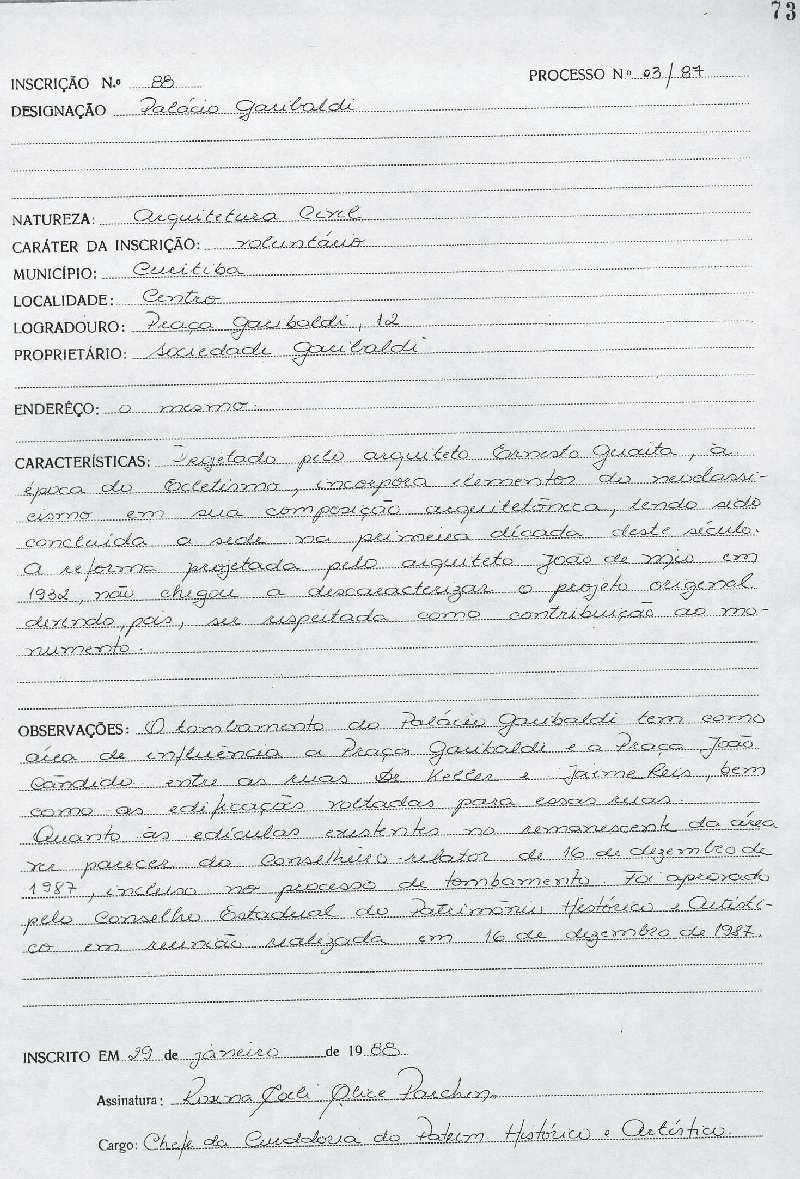 73
INSCRIÇÃO N.º 88 PROCESSO Nº 03/87
DESIGNAÇÃO Palácio Garibaldi
NATUREZA: Arquitetura Civil
CARÁTER DA INSCRIÇÃO: voluntário
MUNICÍPIO: Curitiba
LOCALIDADE: Centro
LOGRADOURO: Praça Garibaldi, 12
PROPRIETÁRIO: Sociedade Garibaldi
ENDERÊÇO: o mesmo
CARACTERÍSTICAS: pelo arquiteto Ernesto Guaita, à
época do Ecletismo, incorpora elementos do neoclassi-
cismo em sua composição arquitetônica, tendo sido
concluída a sede na primeira década deste século.
A reforma projetada pelo arquiteto João de Mio em
1932, não chegou a descaracterizar o projeto original
devendo, pois, ser respeitada como contribuição ao mo-
numento.
OBSERVAÇÕES: O tombamento do Palácio Garibaldi tem como
área de influência a Praça Garibaldi e a Praça João
Cândido entre as ruas Kellers e Jaime Reis, bem
como as edificações voltadas para essas ruas.
Quanto às edículas existentes no remanescente da área
parecer do Conselheiro-relator de 16 de dezembro de
1987, incluso no processo de tombamento. Foi aprovado
pelo Conselho Estadual do Patrimônio Histórico e Artísti-
co em reunião realizada em 16 de dezembro de 1987.
INSCRITO EM 29 de janeiro de 1988
Assinatura: Rosina Alice Parchen
Cargo: Chefe da Curadoria do Patrim Histórico e Artístico.